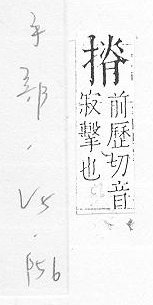 手部.V5.P56
前歷切音
寂擊也